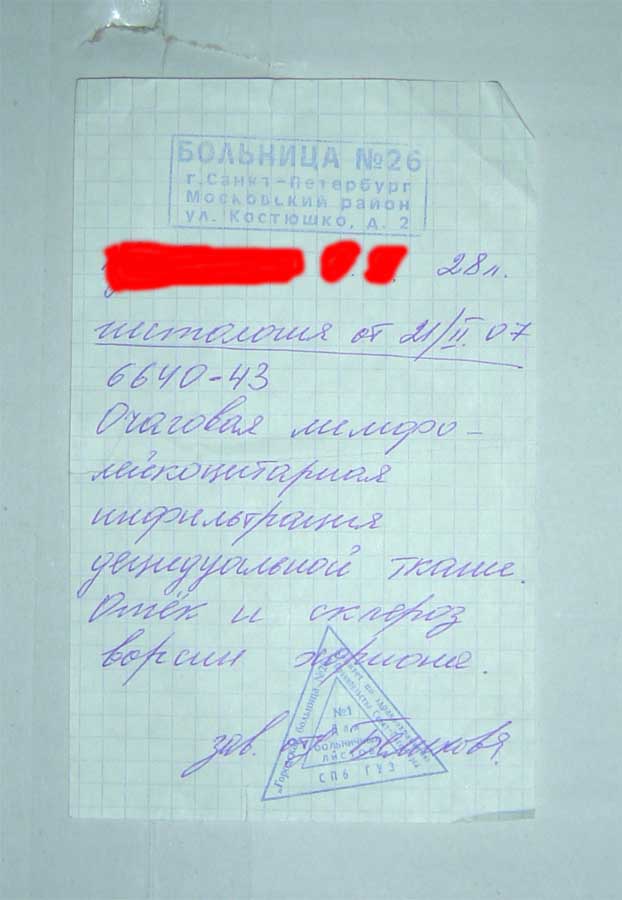 БОЛЬНИЦА №26
г.Санкт-Петербург
Московский район
ул. Костюшко, д. 2
28 л.
гистология от 21/II.07
6640-43
Очаговая лимфо-
лейкоцитарная
инфильтрация
децидуальной ткани.
Отёк и склероз
ворсин хориона.
зав. отд.
№1
для
больничных
листов
СПб ГУЗ
"Городская больница №26"